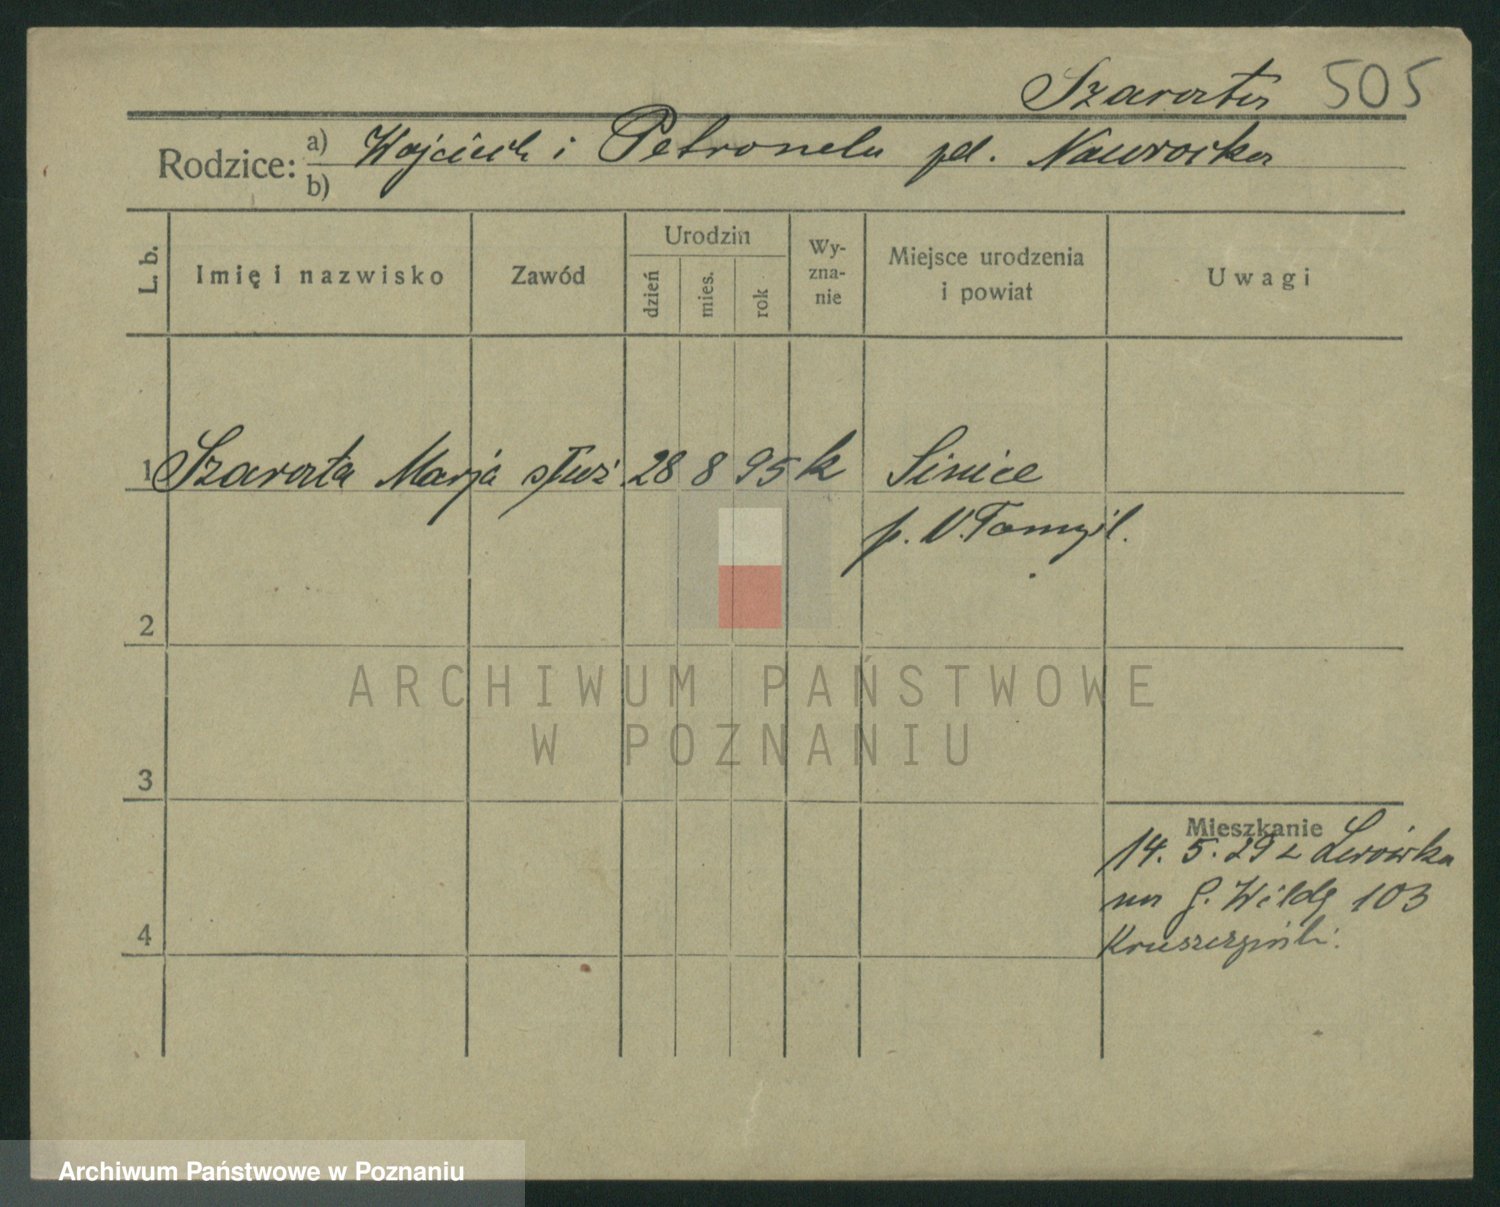 Szarata 505
Rodzice: a) Wojciech i Petronela pd. Nawrocka
b)
L. b.
Imię i nazwisko
Zawód
Urodzin
dzień
mies.
rok
Wy-
zna-
nie
Miejsce urodzenia
i powiat
Uwagi
1 Szarata Marja służ 28 8 95 k
p. N. Tomyśl.
2
ARCHIWUM PAŃSTWOWE
W POZNANIU
3
Mieszkanie
14. 5. 29 z Lwówka
na G. Wildę 103
4
Archiwum Państwowe w Poznaniu